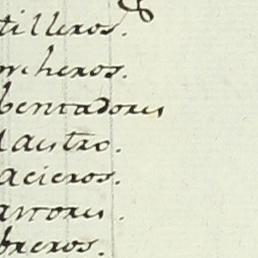 tilleros.
rcheros.
bentadores
lastro.
acieros.
antores.
breros.